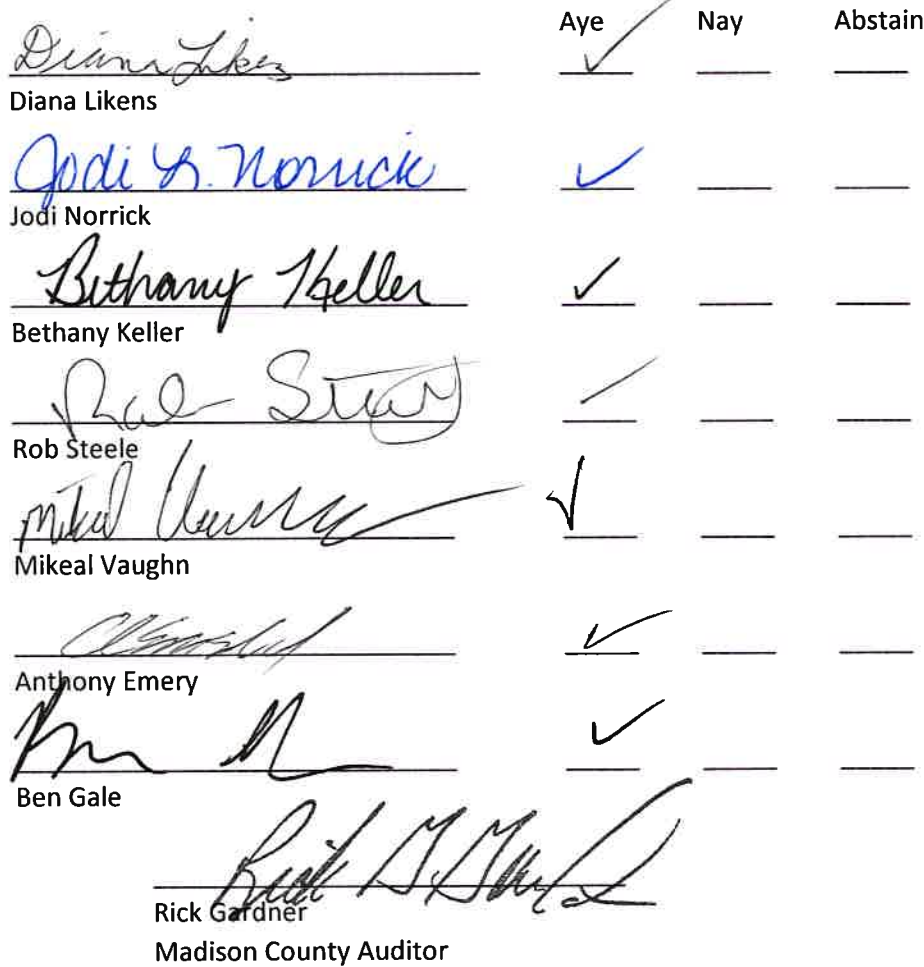 Aye Nay Abstain
Diana Likens ✓
Diana Likens
Jodi L. Norrick ✓
Jodi Norrick
Bethany Keller ✓
Bethany Keller
Rob Steele
Mikeal Vaughn
Anthony Emery
Ben Gale
Rick G. Gardner
Rick Gardner
Madison County Auditor